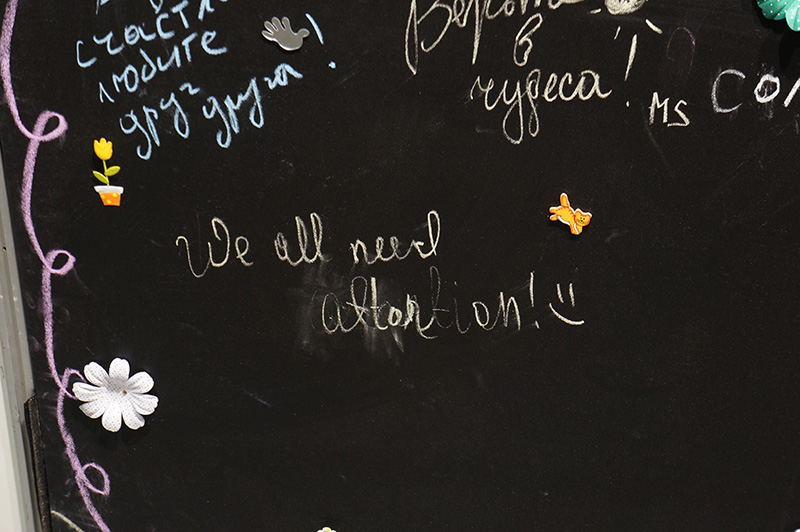 счастл
любите
друг друга!
в
чудеса!
MS
We all need
attention! =)